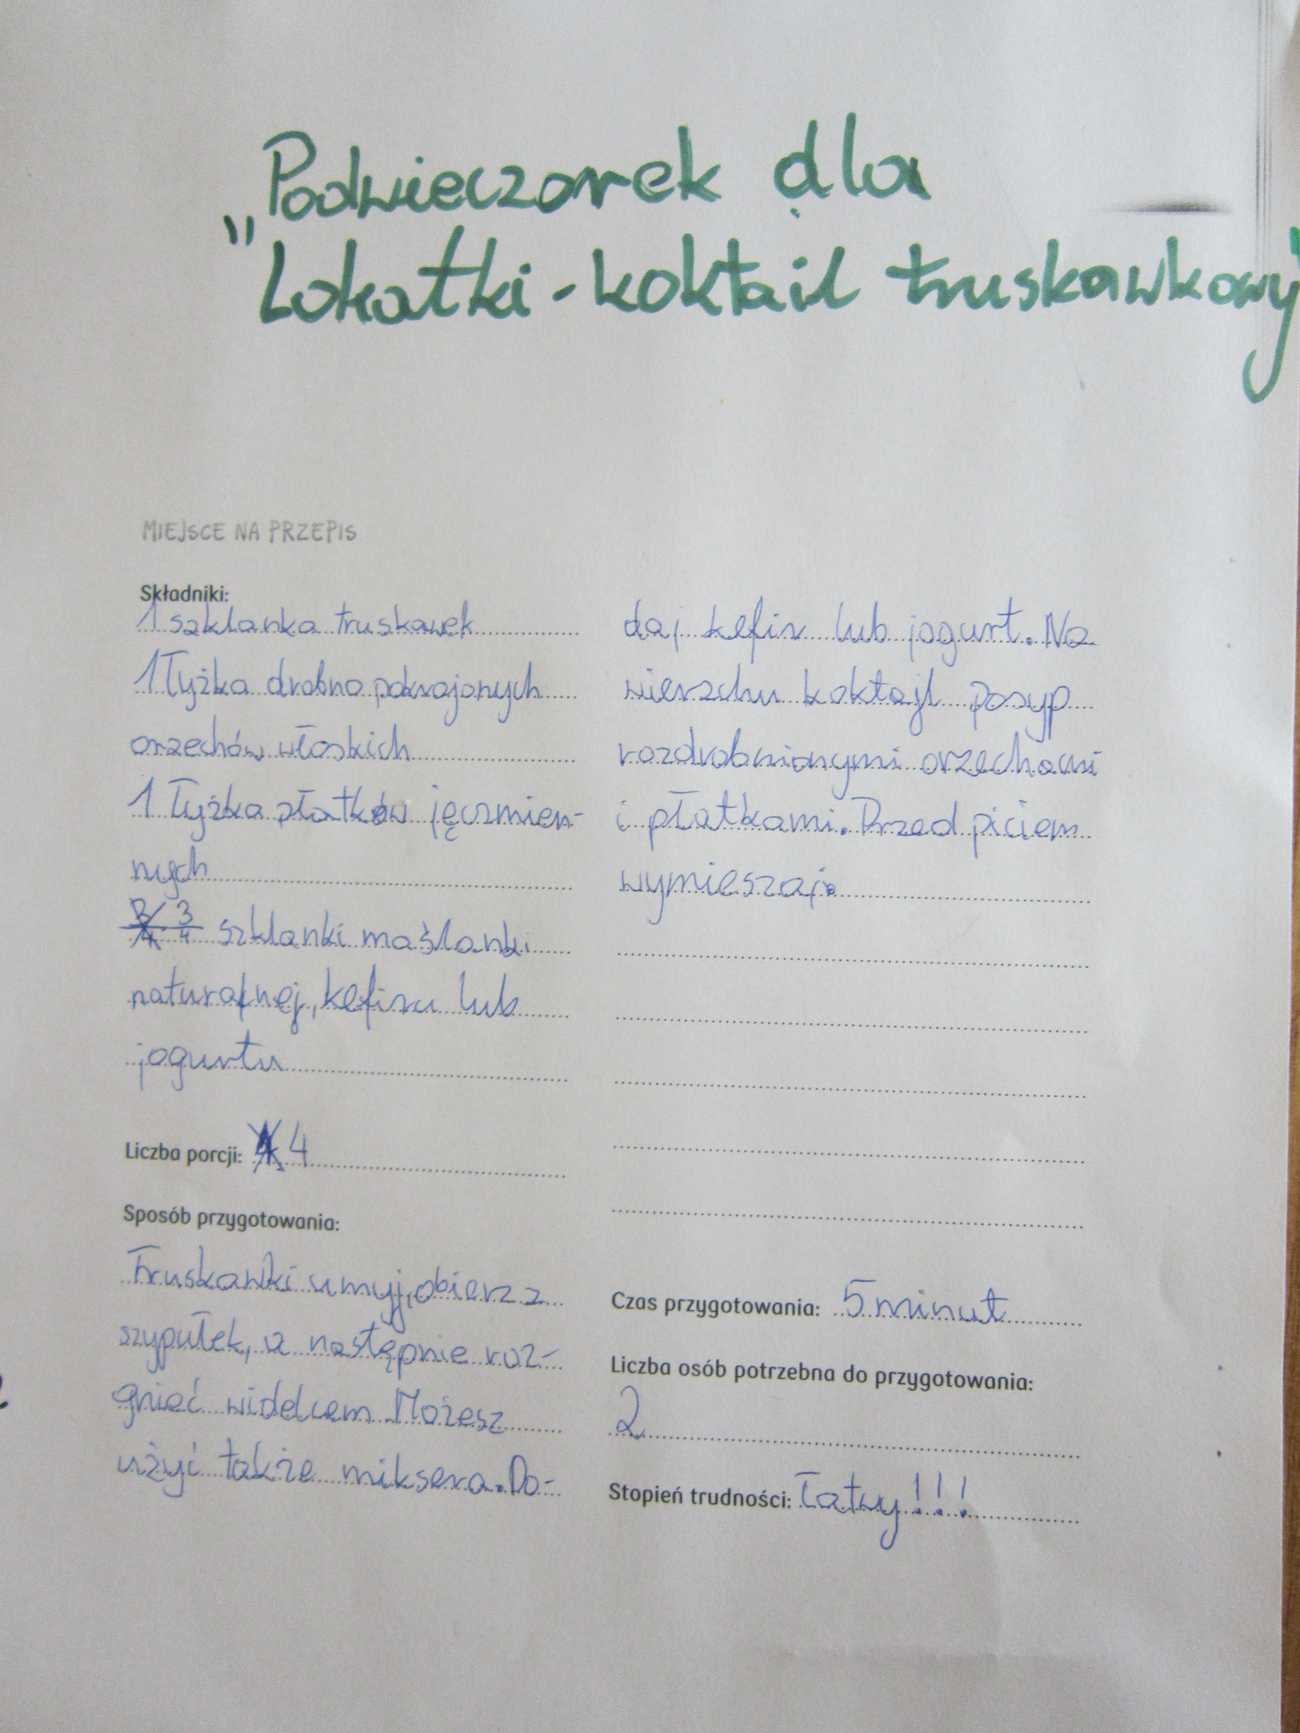 Podwieczorek dla
"Lokatki - koktail truskawkowy"
MIEJSCE NA PRZEPIS
Składniki:
1 szklanka truskawek
1 łyżka drobno pokrojonych
orzechów włoskich
1 łyżka płatków jęczmien-
nych
3/4 szklanki maślanki
naturalnej, kefiru lub
jogurtu
Liczba porcji: 4
Sposób przygotowania:
Truskawki umyj, obierz z
szypułek, a następnie roz-
gnieć widelcem Możesz
użyć także miksera. Do-
daj kefir lub jogurt. Na
wierzchu koktajl posyp
rozdrobnionymi orzechami
i płatkami. Przed piciem
wymieszaj.
Czas przygotowania: 5 minut
Liczba osób potrzebna do przygotowania:
2
Stopień trudności: Łatwy!!!